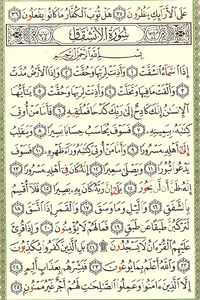 عَلَى ٱلْأَرَآئِكِ يَنظُرُونَ ٣٥ هَلْ ثُوِّبَ ٱلْكُفَّارُ مَا كَانُوا۟ يَفْعَلُونَ ٣٦
سُورَةُ الانشِقَاقِ
بِسْمِ ٱللَّهِ ٱلرَّحْمَٰنِ ٱلرَّحِيمِ
إِذَا ٱلسَّمَآءُ ٱنشَقَّتْ ١ وَأَذِنَتْ لِرَبِّهَا وَحُقَّتْ ٢ وَإِذَا ٱلْأَرْضُ مُدَّتْ
٣ وَأَلْقَتْ مَا فِيهَا وَتَخَلَّتْ ٤ وَأَذِنَتْ لِرَبِّهَا وَحُقَّتْ ٥ يَٰٓأَيُّهَا
ٱلْإِنسَٰنُ إِنَّكَ كَادِحٌ إِلَىٰ رَبِّكَ كَدْحًا فَمُلَٰقِيهِ ٦ فَأَمَّا مَنْ أُوتِىَ
كِتَٰبَهُۥ بِيَمِينِهِۦ ٧ فَسَوْفَ يُحَاسَبُ حِسَابًا يَسِيرًا ٨ وَيَنقَلِبُ
إِلَىٰٓ أَهْلِهِۦ مَسْرُورًا ٩ وَأَمَّا مَنْ أُوتِىَ كِتَٰبَهُۥ وَرَآءَ ظَهْرِهِۦ ١٠ فَسَوْفَ
يَدْعُوا۟ ثُبُورًا ١١ وَيَصْلَىٰ سَعِيرًا ١٢ إِنَّهُۥ كَانَ فِىٓ أَهْلِهِۦ مَسْرُورًا ١٣
إِنَّهُۥ ظَنَّ أَن لَّن يَحُورَ ١٤ بَلَىٰٓ إِنَّ رَبَّهُۥ كَانَ بِهِۦ بَصِيرًا ١٥ فَلَآ أُقْسِمُ
بِٱلشَّفَقِ ١٦ وَٱلَّيْلِ وَمَا وَسَقَ ١٧ وَٱلْقَمَرِ إِذَا ٱتَّسَقَ ١٨
لَتَرْكَبُنَّ طَبَقًا عَن طَبَقٍ ١٩ فَمَا لَهُمْ لَا يُؤْمِنُونَ ٢٠ وَإِذَا قُرِئَ
عَلَيْهِمُ ٱلْقُرْءَانُ لَا يَسْجُدُونَ ۩ ٢١ بَلِ ٱلَّذِينَ كَفَرُوا۟ يُكَذِّبُونَ
٢٢ وَٱللَّهُ أَعْلَمُ بِمَا يُوعُونَ ٢٣ فَبَشِّرْهُم بِعَذَابٍ أَلِيمٍ
٢٤ إِلَّا ٱلَّذِينَ ءَامَنُوا۟ وَعَمِلُوا۟ ٱلصَّٰلِحَٰتِ لَهُمْ أَجْرٌ غَيْرُ مَمْنُونٍۭ ٢٥